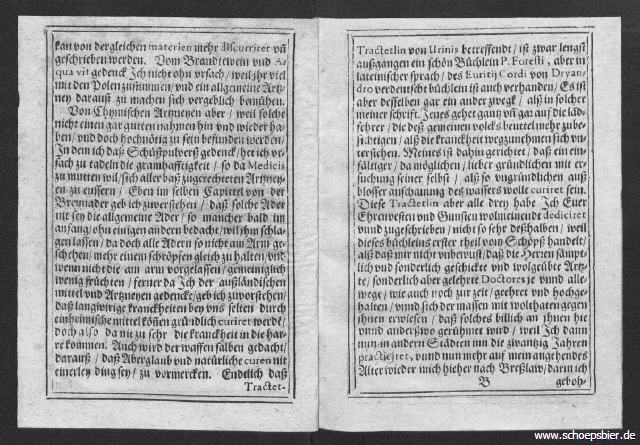 kan von dergleichen materien mehr discurriret vñ
geschrieben werden. Vom Brandtewein vnd A-
qua vit gedenck Ich nicht ohn vrsach / weil jhr viel
mit den Polen zustimmen / vnd ein allgemeine Artz-
ney darauß zu machen sich vergeblich bemühen.
Von Chymischen Artzneyen aber / weil solche
nicht einen gar gutten nahmen hin vnd wieder ha-
ben / vnd doch hochnötig zu sein befunden werden/
In dem ich daß Schüßpulverß gedenck / het ich vr-
sach zu tadeln die gramhafftigkeit / so da Medicis
zu mutten wil / sich aller baß zugerechteten Artzney-
en zu eussern / Eben im selben Capittel von der
Breunader geb ich zuverstehen / daß solche Ader
nit sey die allgemeine Ader / so mancher bald im
anfang / ohn einigen andern bedacht / wil jhm schla-
gen lassen / da doch alle Adern so nicht am Arm ge-
schehen / mehr einem schröpfen gleich zu halten / vnd
wenn nicht die am arm vorgelassen / gemeiniglich
wenig früchten / ferner da Ich der außländischen
mittel vnd Artzneyen gedencke / geb ich zuvorstehen /
daß langwirige kranckheiten bey vns selten durch
einheimische mittel können gründlich curiret werdē/
doch also da nit zu sehr die kranckheit in die har-
re kommen. Auch wird der waffen salben gedacht/
darauß / daß Aberglaub vnd natürliche curen nit
einerley ding sey / zu vormercken. Endtlich daß
Tractet-
Tractetlin von Urinis betreffendt / ist zwar lengst
außgangen ein schön Büchlein P. Foresti, aber in
lateinischer sprach / des Euritij Cordi von Dryan-
dro verdeutscht büchlein ist auch verhanden / Es ist
aber desselben gar ein ander zweck / alß in solcher
meiner schrifft. Jenes gehet gantz vñ gar auf die läd-
fehrer / die deß gemeinen volcks beuttel mehr zube-
sichtigen / alß die kranckheit wegzunehmen sich vn-
terstehen. Meines ist dahin gerichtet / daß ein ein-
fältiger / da möglichen / lieber gründlichen mit er-
suchung seiner selbst / alß so vngründlichen auß
blosser anschauung des wassers wolle curiret sein.
Diese Tractetlin aber alle drey habe Ich Euer
Ehrenvesten vnd Gunsten wolmeinendt dediciret
vnnd zugeschrieben / nicht so sehr deßhalben / weil
dieses büchleins erster theil vom Schöpß handelt/
alß daß mir nicht vnbewust / daß die Herren sämpt-
lich vnd sonderlich geschickte vnd wolgeübte Artz-
te / sonderlich aber gelehrte Doctores je vnnd alle-
wege / wie auch noch zur zeit / geehret vnd hochge-
halten / vnnd sich der massen mit wolthaten gegen
ihnen erwiesen / daß solches billich an ihnen hie
vnnd anderßwo gerühmet wird / weil Ich dann
nun in andern Städten inn die zwantzig Jahren
practicjret, vnnd nun mehr auf mein angehendes
Alter wieder mich hieher nach Breßlaw / darin ich
B geboh-
www.schoepsbier.de